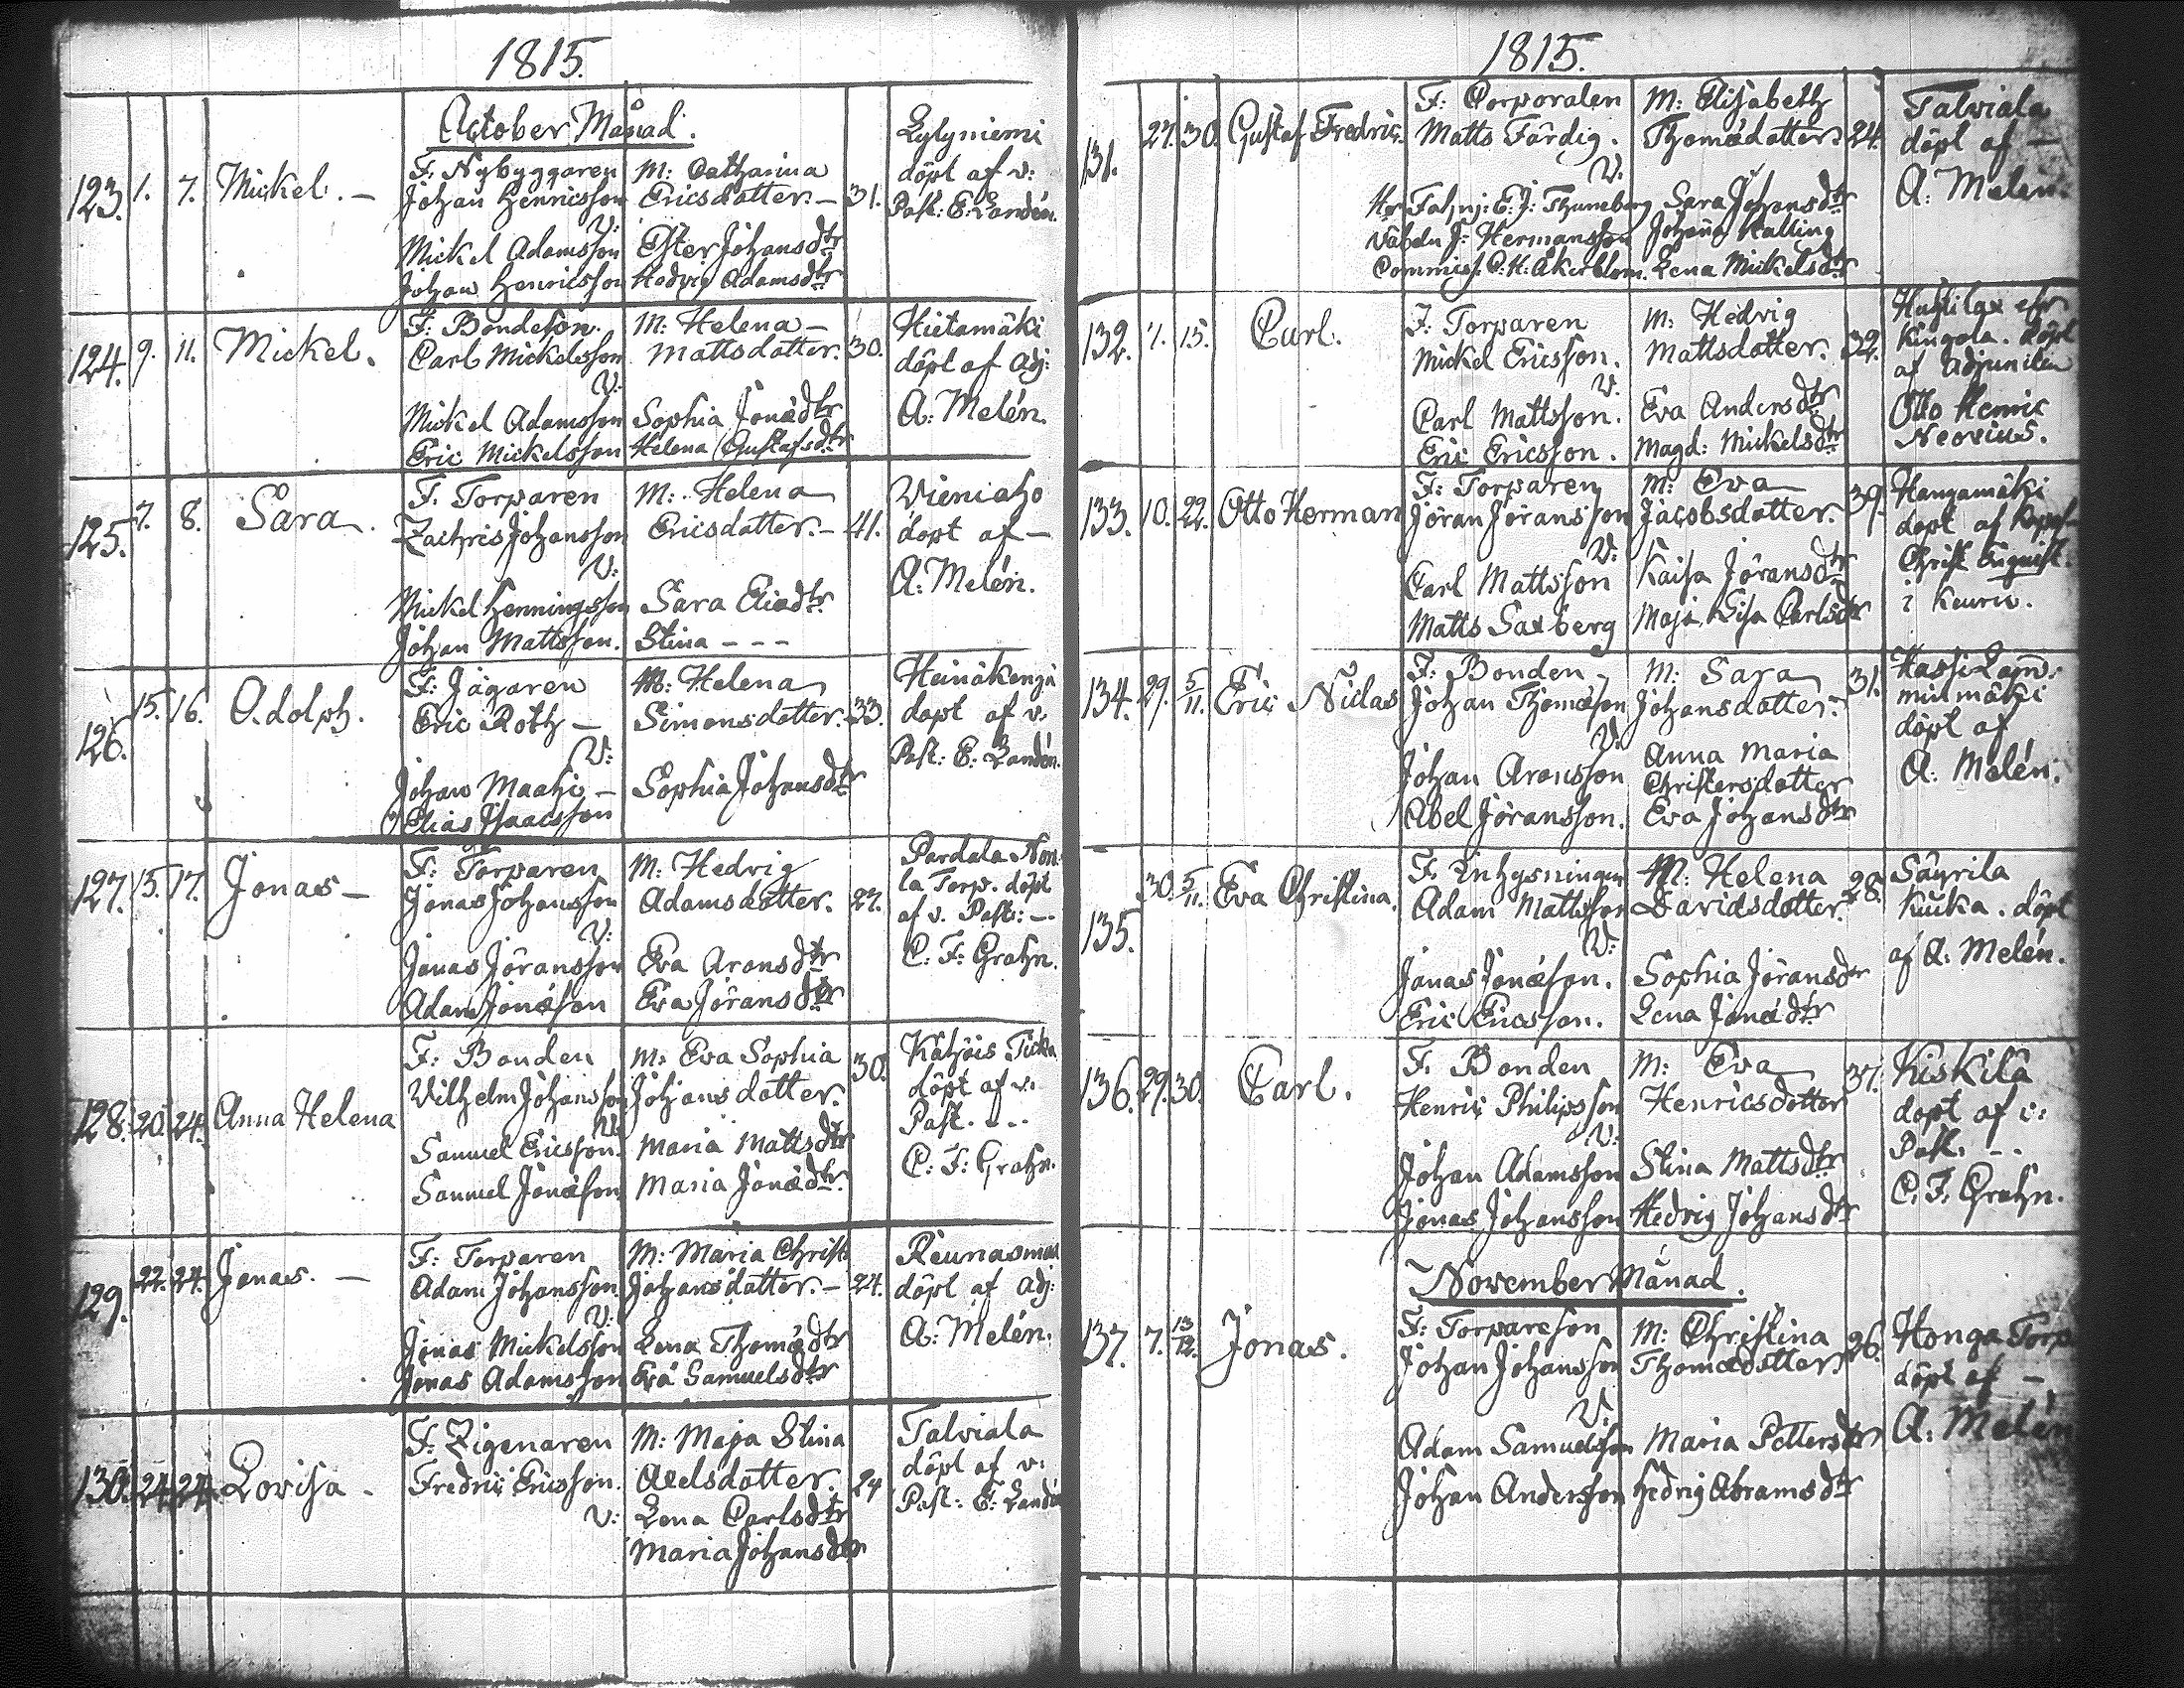 1815.
October Månad.
123. 1. 7. Mickel. —
F: Nybyggaren
Johan Henricsson
V:
Mickel Adamsson
Johan Henricsson
M: Catharina
Ericsdotter. — 31.
Ester Johansdtr
Hedvig Adamsdtr
Lylyniemi
döpt af v:
Past: E: Landén.
124. 9. 11. Mickel.
F: Bondeson.
Carl Mickelsson
V:
Mickel Adamsson
Eric Mickelsson
M: Helena —
Mattsdotter. 30.
Sophia Jonædtr
Helena Gustafsdtr
Hietamäki
döpt af Adj:
A: Melén.
125. 7. 8. Sara.
F: Torparen
Zachris Johansson
V:
Mickel Henningsson
Johan Mattsson.
M: Helena
Ericsdotter. — 41.
Sara Eliædtr
Stina - - -
Vieniaho
döpt af —
A: Melén.
126. 15. 16. Adolph.
F: Jägaren
Eric Roth —
V:
Johan Maahi —
Elias Isaacsson
M: Helena
Simonsdotter. 33.
Sophia Johansdtr
Heinäkengä
döpt af v.
Past: E: Landén.
127. 15. 17. Jonas —
F: Torparen
Jonas Johansson
V:
Jonas Jöransson
Adam Jonæson
M: Hedvig
Adamsdotter. 27.
Eva Aronsdtr
Eva Jöransdtr
Pardala Non-
la Torp. döpt
af v. Past: —
C. F: Grahn.
128. 20. 24. Anna Helena
F: Bonden
Vilhelm Johansson
V:
Samuel Ericsson.
Samuel Jonæson
M: Eva Sophia 30.
Johansdotter.
Maria Mattsdtr
Maria Jonædtr.
Kähöis Ticka
döpt af v.
Past. - - -
C: F: Grahn.
129. 22. 24. Jonas. —
F: Torparen
Adam Johansson.
V:
Jonas Mickelsson
Jonas Adamsson
M: Maria Christ:
Johansdotter. — 24.
Lena Thomædtr
Eva Samuelsdtr
Reunasmaa
döpt af Adj:
A: Melén.
130. 24. 24. Lovisa.
F: Zigenaren
Fredric Ericsson.
V:
M: Maja Stina
Axelsdotter. 24
Lena Carlsdtr
Maria Johansdtr
Talviala
döpt af v:
Past: E: Landén
1815.
131. 27. 30. Gustaf Fredric.
F: Corporalen
Matts Färdig.
V.
Hr Fahnj: E: J: Thuneberg
Väbeln J: Hermansson
Commiss. C: H: Åkerblom.
M: Elisabeth
Thomædotter. 24.
Sara Johansdtr
Johanna Kalling
Lena Mickelsdtr
Talviala
döpt af —
A: Melén.
132. 7. 15. Carl.
F: Torparen
Mickel Ericsson.
V.
Carl Mattsson.
Eric Ericsson.
M: Hedvig
Mattsdotter. 32.
Eva Andersdtr
Magd: Mickelsdtr
Kingola. döpt
Otto Henric
Neovius.
133. 10. 22. Otto Herman
F: Torparen
Jöran Jöransson
V:
Carl Mattsson
Matts Saxberg
M: Eva
Jacobsdotter. 39.
Kaisa Jöransdtr
Maja Lisa Carlsdtr
Hangamäki
döpt af
i Keuru.
134. 29. 5/11. Eric Niclas
F: Bonden
Johan Thomæson
V.
Johan Aronsson
Abel Jöransson.
M: Sara 31.
Johansdotter.
Anna Maria
Christersdotter
Eva Johansdtr
döpt af
A: Melén.
135. 30. 5/11. Eva Christina.
F: Inhysningen
Adam Mattsson
V:
Jonas Jonæson.
Eric Ericsson.
M: Helena 28.
Davidsdotter.
Sophia Jöransdtr
Lena Jonædtr
Säyrilä
Kucka. döpt
af A: Melén.
136. 29. 30. Carl.
F: Bonden
Henric Philipsson
V:
Johan Adamsson
Jonas Johansson
M: Eva 37.
Henricsdotter
Stina Mattsdtr
Hedvig Johansdtr
Kiskilä
döpt af v:
Past. - -
C. F. Grahn.
November Månad.
137. 7. 13/12. Jonas.
F: Torpareson
Johan Johansson
V.
Adam Samuelsson
Johan Andersson
M: Christina 26.
Thomædotter.
Maria Pettersdtr
Hedvig Abramsdtr
Honga Torp
döpt af —
A: Melén